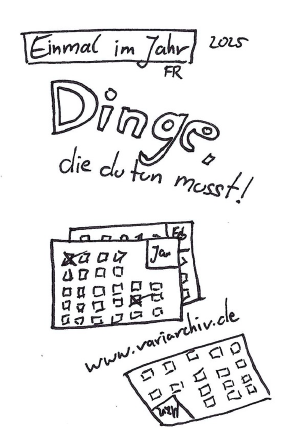 Einmal im Jahr 2025
FR
Dinge,
die du tun musst!
Feb
Jan
www.variarchiv.de